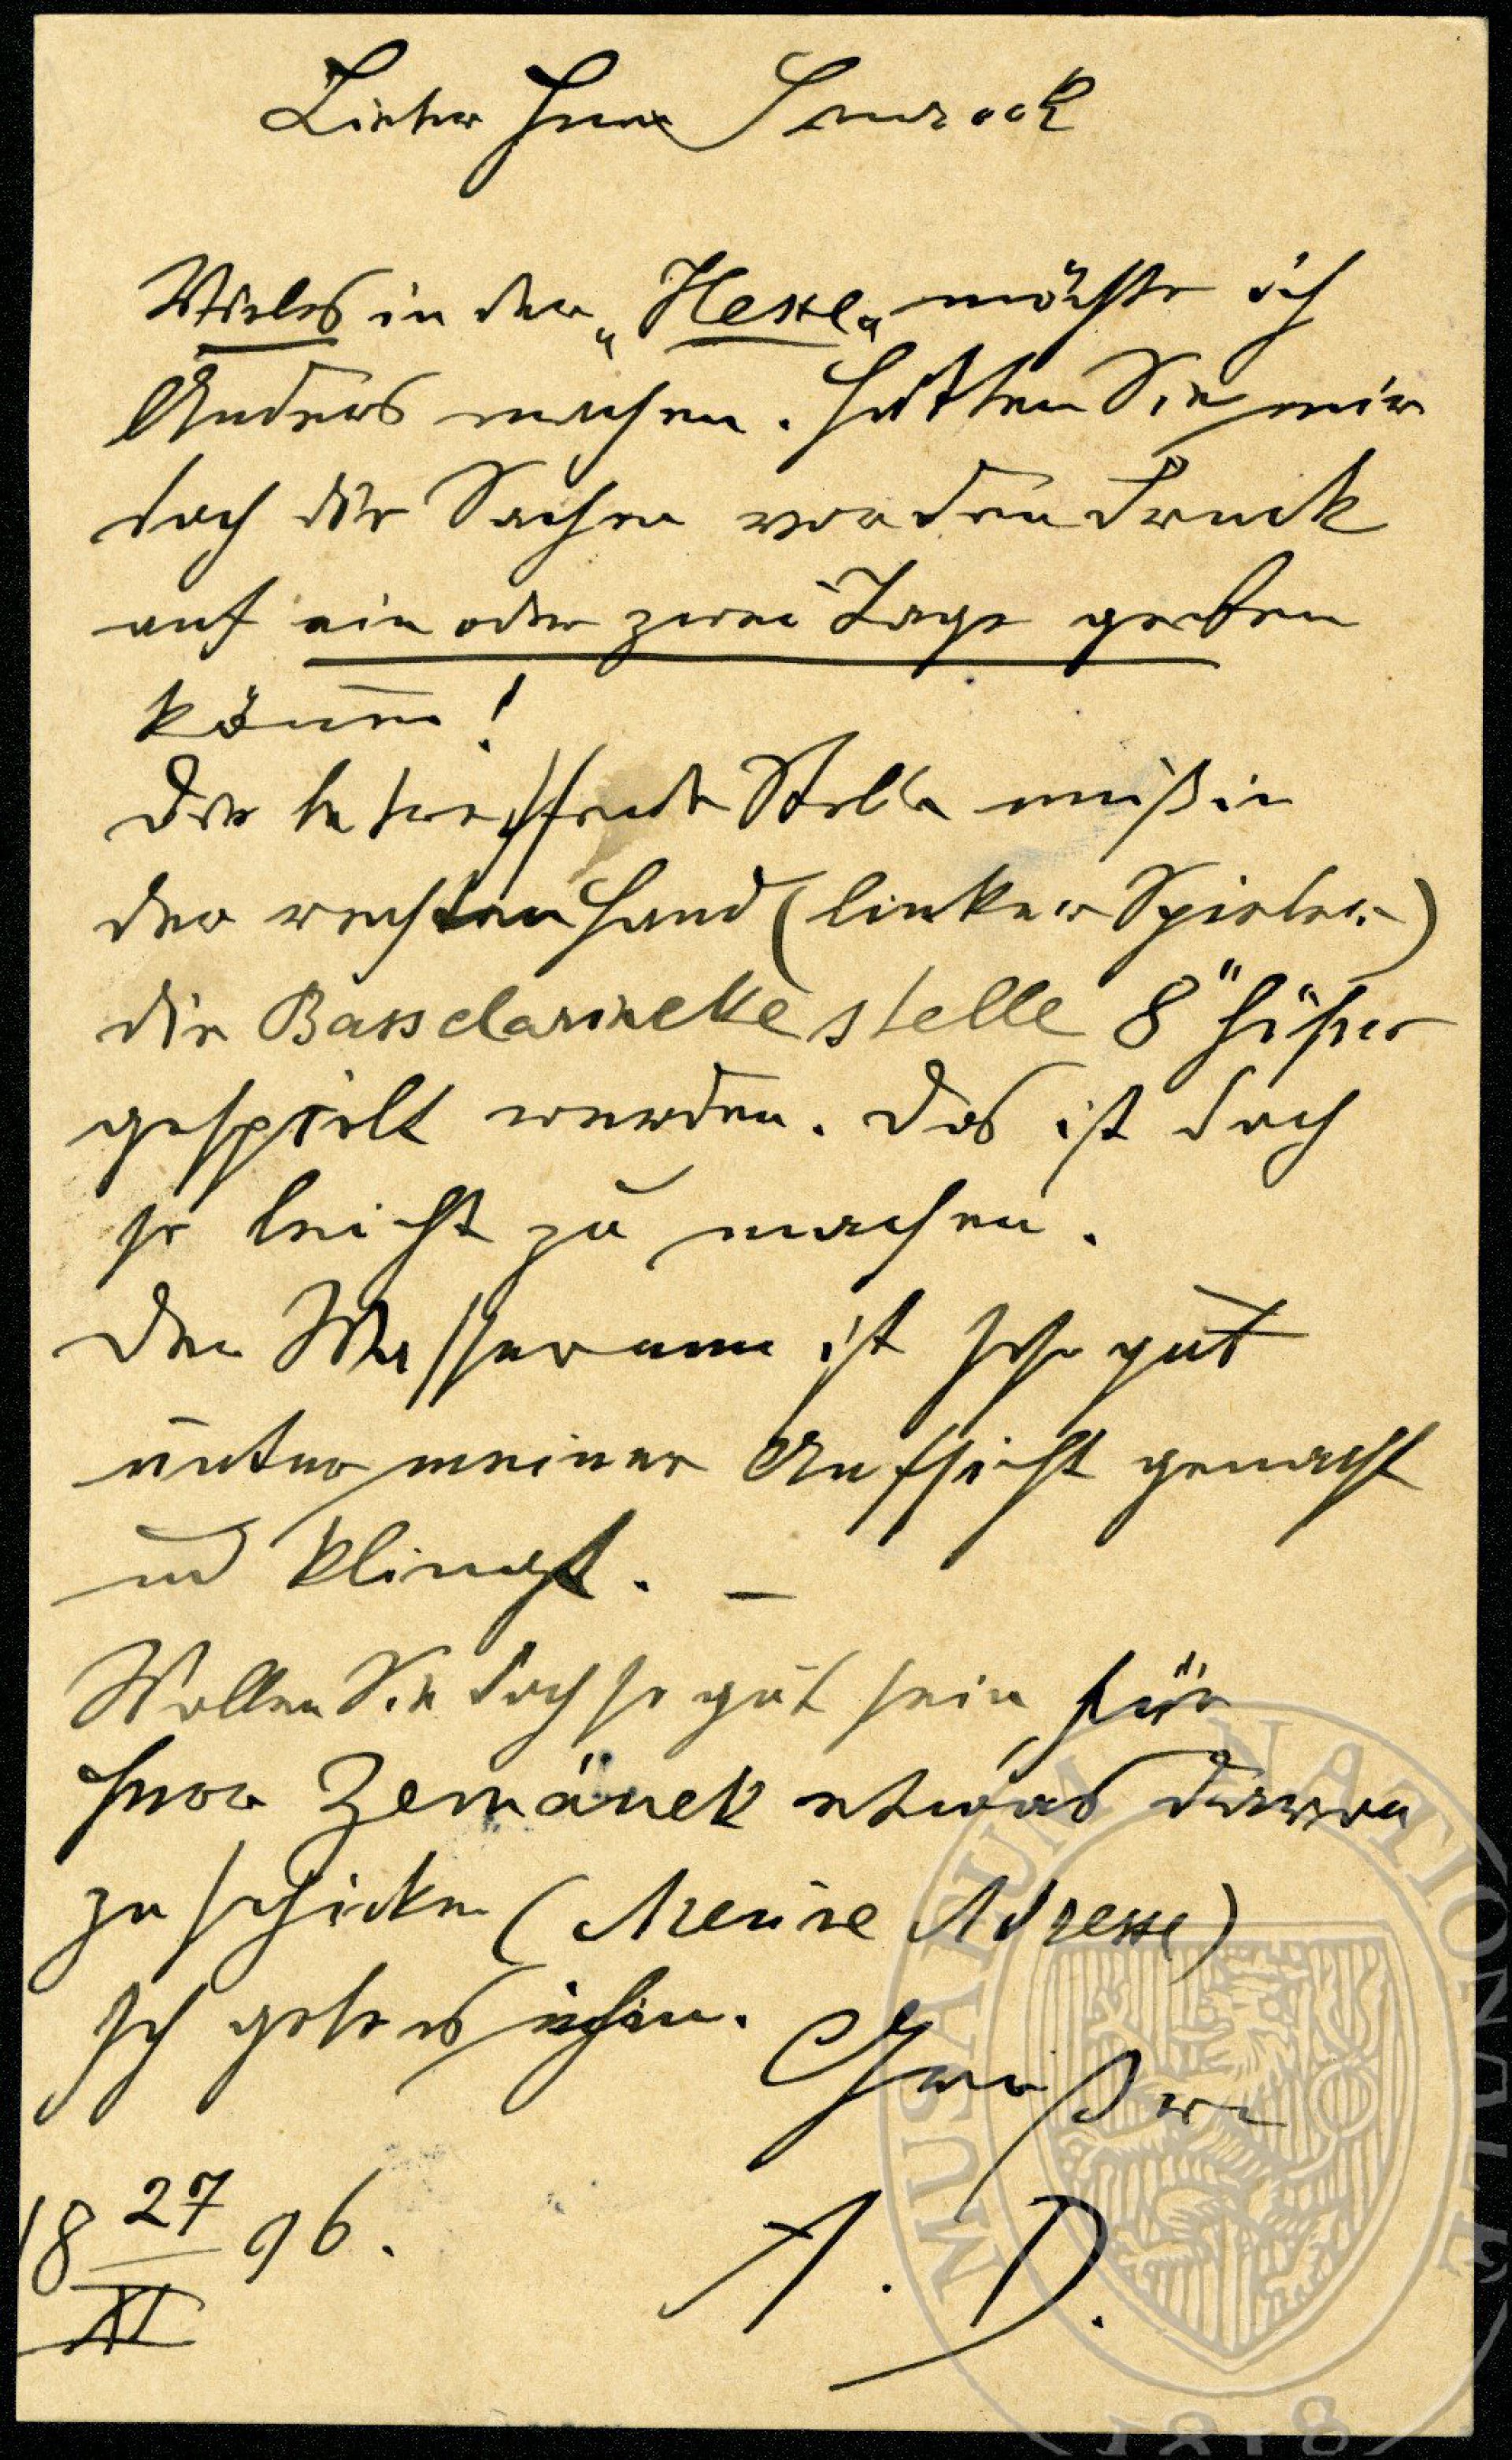 Lieber Herr Simrock
Vieles in der „Hexe“ möchte ich
Anders machen. Hätten Sie mir
doch die Sachen vor dem Druck
auf ein oder zwei Tage geben
können!
Die betreffende Stelle muß in
der rechten Hand (linker Spieler)
die Bassclarinette stelle 8" höher
gespielt werden. Das ist doch
so leicht zu machen.
Der Wassermann ist sehr gut
unter meiner Aufsicht gemacht
und klingt. —
Wollen Sie doch so gut sein für
Herrn Zemánek etwas davon
zu schicken (Meine Adresse)
Ich gebe es ihm.
Grüße
18 27/XI 96.
A. D.
MUSAEUM NATIONALE
1818